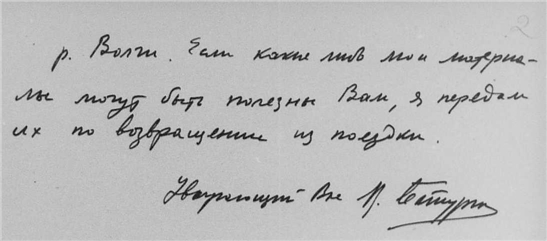 2
р. Волги. Если какие либо мои материа-
лы могут быть полезны Вам, я передам
их по возвращении из поездки.
Уважающий Вас